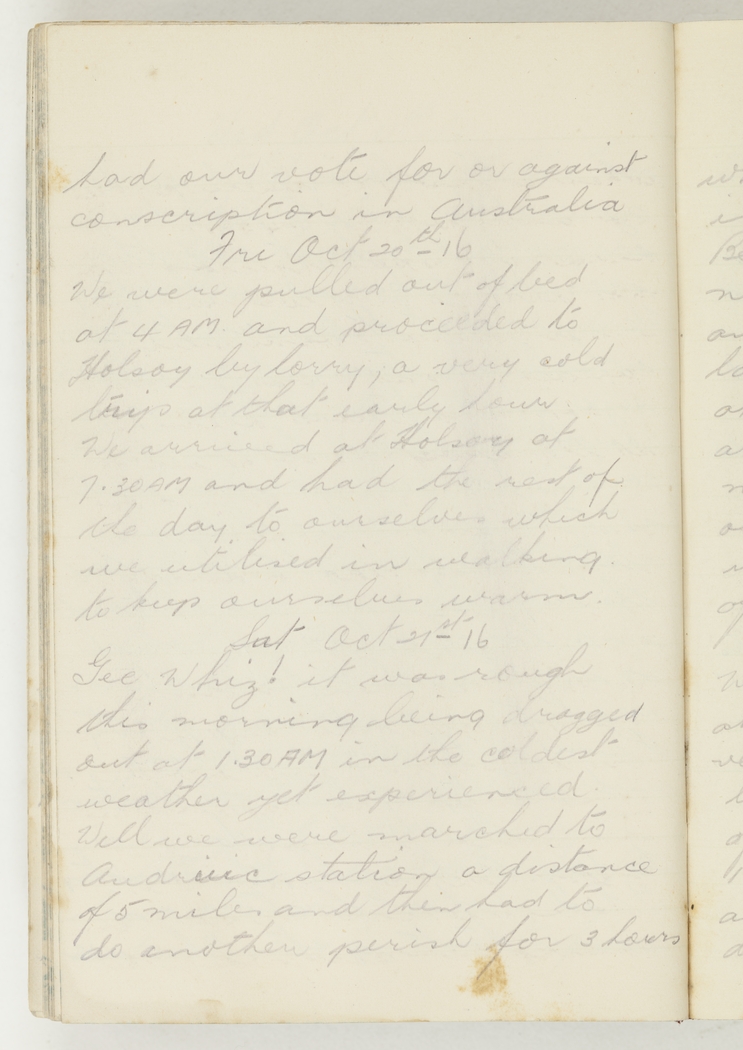 had our vote for or against
conscription in Australia
Fri Oct 20th 16
We were pulled out of bed
at 4 AM. and proceeded to
Holsoy by lorry, a very cold
trip at that early hour.
We arrived at Holsoy at
7.30 AM and had the rest of
the day to ourselves which
we utilised in walking
to keep ourselves warm.
Sat Oct 21st 16
Gee Whiz! it was rough
this morning being dragged
out at 1.30 AM in the coldest
weather yet experienced.
Well we were marched to
Audruic station a distance
of 5 miles and then had to
do another perish for 3 hours